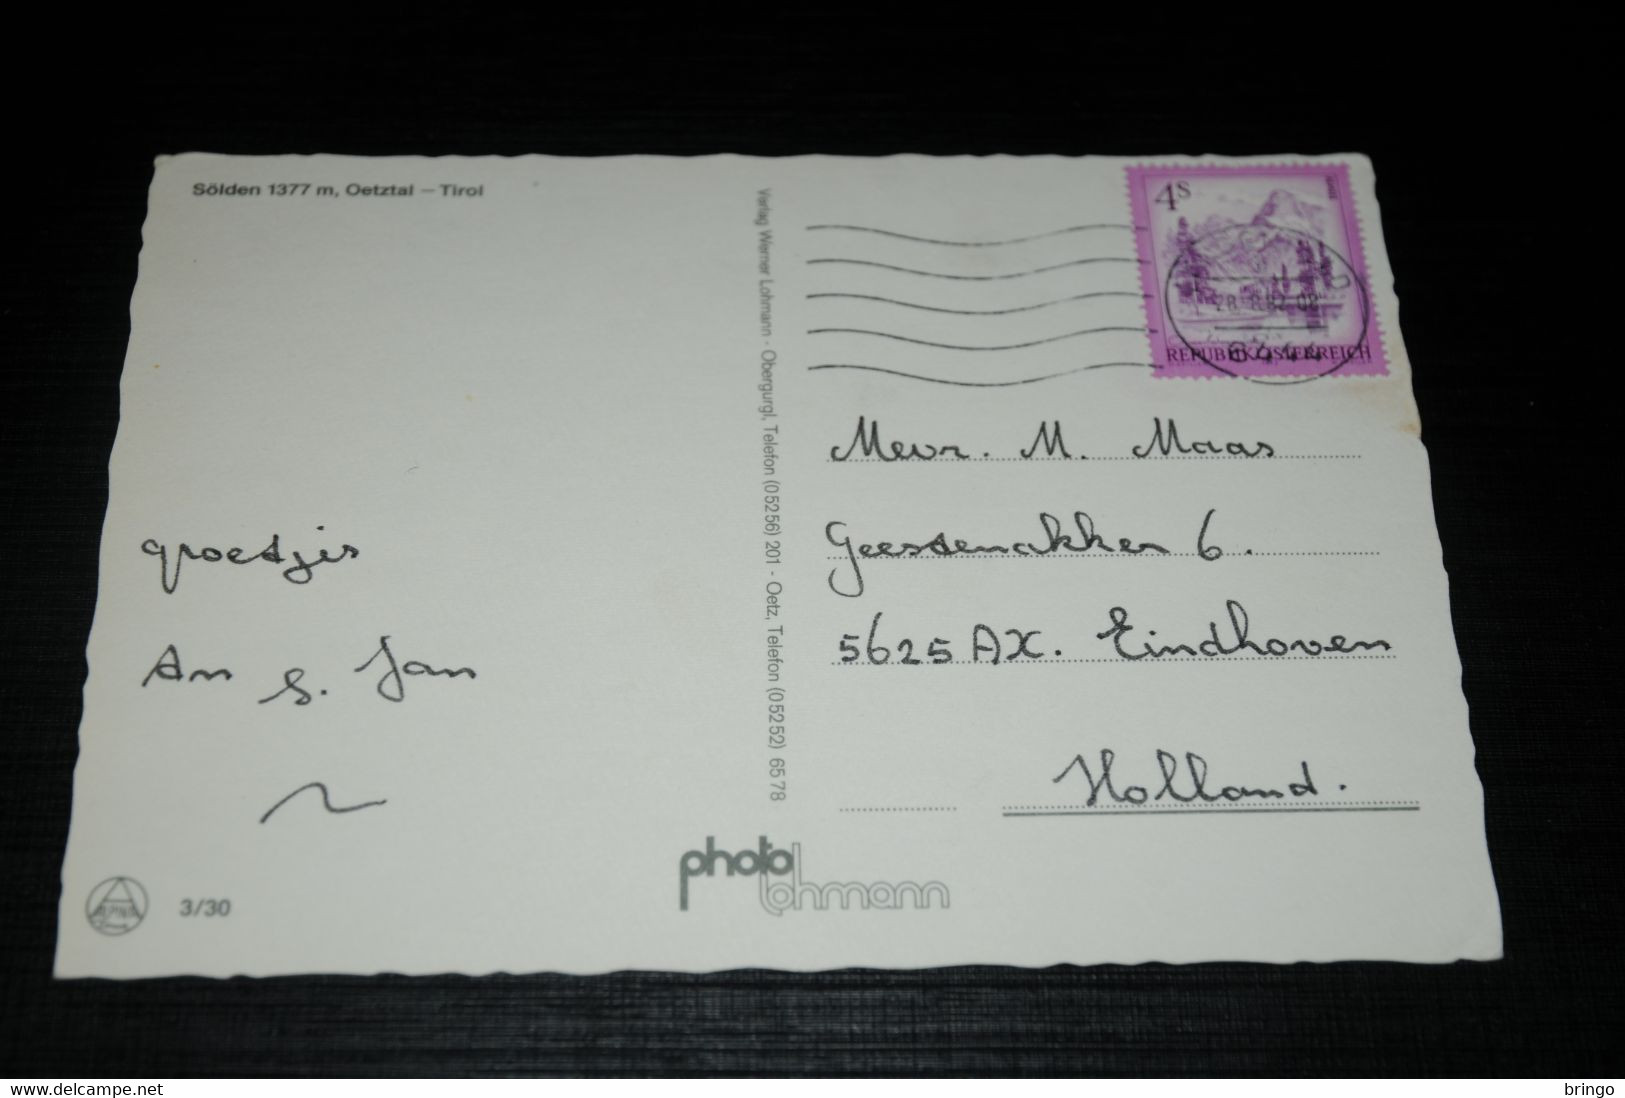 Sölden 1377 m, Oetztal – Tirol
4S
REPUBLIK ÖSTERREICH
Verlag Werner Lohmann - Obergurgl, Telefon (05256) 201 - Oetz, Telefon (05252) 6578
groetjes
An s. Jan
Mevr. M. Maas
Geestenakker 6.
5625 AX. Eindhoven
Holland.
photo
lohmann
ALPINA
3/30
www.delcampe.net
bringo